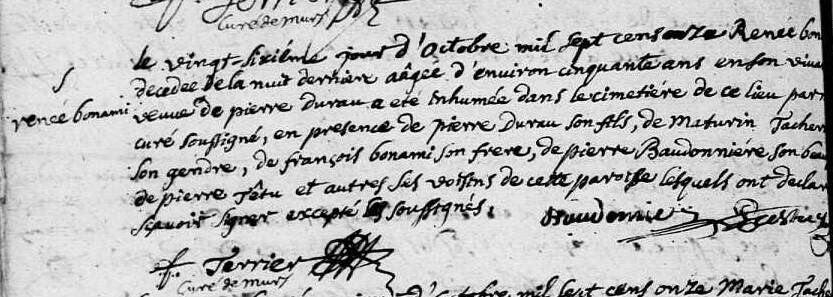 Curé de murs
le vingt-sixième jour d'Octobre mil sept cens onze Renée bon
decedée de la nuit derniere aâgée d'environ cinquante ans en son viva
S
renée bonami
veuve de pierre Durau a eté enhumée dans le cimetiére de ce lieu par n
curé soussigné, en presence de pierre Durau son fils, de Maturin Tacher
son gendre, de françois bonami son frere, de pierre Baudonniére son beau
de pierre Têtu et autres ses voisins de cette paroisse lesquels ont declar
sçavoir signer excepté les soussignés.
f. Terrier
Curé de murs
d'Octobre mil sept cens onze Marie Tache